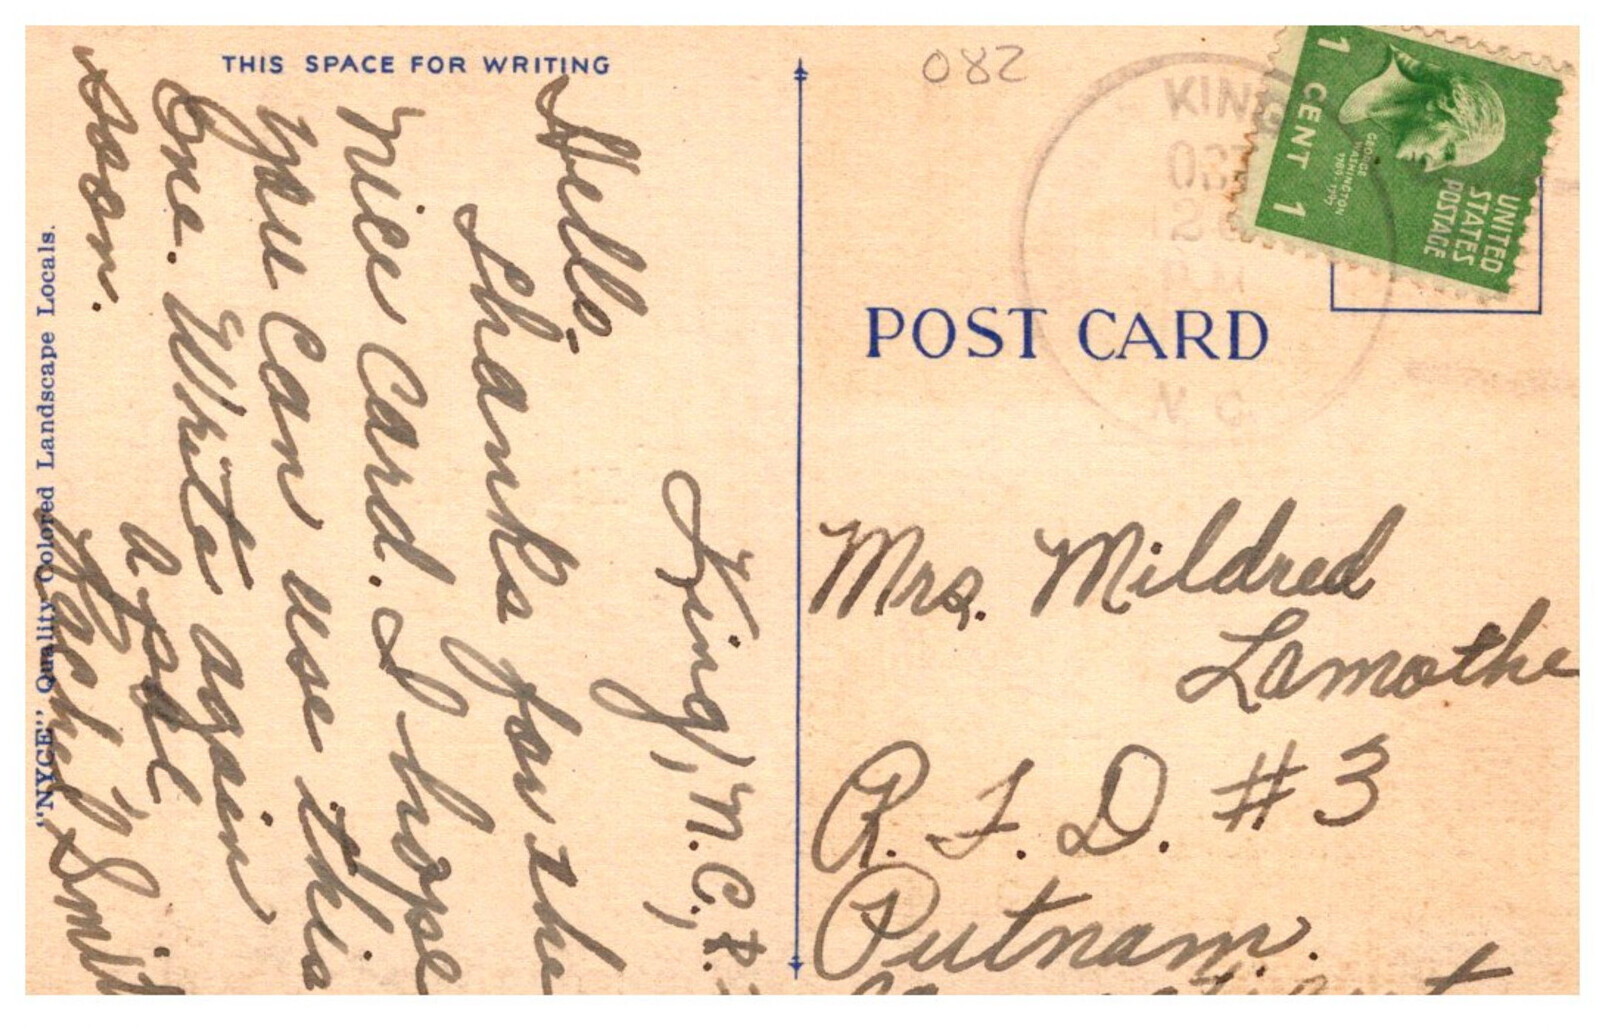 THIS SPACE FOR WRITING
King, N.C.,
Hello,
Thanks for the
nice Card. I hope
you Can use this
One. Write again
soon.
Smith
"NYCE" Quality Colored Landscape Locals.
082
KING
N C
1 CENT 1
GEORGE WASHINGTON
UNITED
STATES
POSTAGE
POST CARD
Mrs. Mildred
Lamothe
R. F. D. # 3
Putnam.